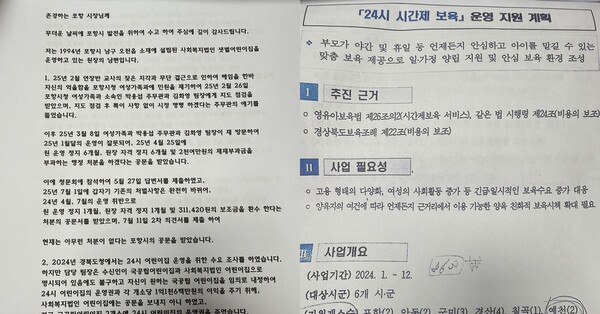 존경하는 포항 시장님께
무더운 날씨에 포항시 발전을 위하여 수고 하여 주심에 깊이 감사드립니다.
저는 1994년 포항시 남구 오천읍 소재에 설립된 사회복지법인 샛별어린이집을
운영하고 있는 원장의 남편입니다.
1. 25년 2월 연장반 교사의 잦은 지각과 무단 결근으로 인하여 해임을 한바
자신의 억울함을 포항시청 여성가족과에 민원을 제기하여 25년 2월 26일
포항시청 여성가족과 소속인 박용섭 주무관과 김희영 팀장에게 지도 점검을
받았으며, 지도 점검 후 특이 사항 없이 시정 명령 하겠다는 주무관의 얘기를
들었습니다.
이후 25년 3월 8일 여성가족과 박용섭 주무관과 김희영 팀장이 재 방문하여
25년 1월달의 운영이 잘못되어, 25년 4월 25일에
원 운영 정지 6개월, 원장 자격 정지 6개월 및 2천여만원의 제재부과금을
부과하는 행정 처분을 하겠다는 공문을 받았습니다.
이에 청문회에 참석하여 5월 27일 답변서를 제출하였고,
25년 7월 1일에 갑자기 기존의 처벌사항은 완전히 바뀌어,
24년 4월, 7월의 운영 위반으로
원 운영 정지 1개월, 원장 자격 정지 1개월 및 311,420원의 보조금을 환수 한다는
처분의 공문서를 받았으며, 7월 11일 2차 의견서를 제출 하여
현재는 아무런 처분이 없다는 포항시의 공문을 받았습니다.
2. 2024년 경북도청에서는 24시 어린이집 운영을 위한 수요 조사를 하였습니다.
하지만 담당 팀장은 수신인이 국공립어린이집과 사회복지법인 어린이집으로
명시되어 있음에도 불구하고 자신이 원하는 국공립 어린이집을 임의로 내정하여
24시 어린이집의 운영권과 각 개소당 1억1천6백만원의 이익을 주기 위해,
사회복지법인 어린이집에는 공문을 보내지 아니 하였고,
「24시 시간제 보육」 운영 지원 계획
◇ 부모가 야간 및 휴일 등 언제든지 안심하고 아이를 맡길 수 있는
맞춤 보육 제공으로 일·가정 양립 지원 및 안심 보육 환경 조성
Ⅰ 추진 근거
○ 영유아보육법 제26조의2(시간제보육 서비스), 같은 법 시행령 제24조(비용의 보조)
○ 경상북도보육조례 제22조(비용의 보조)
Ⅱ 사업 필요성
○ 고용 형태의 다양화, 여성의 사회활동 증가 등 긴급·일시적인 보육수요 증가 대응
○ 양육자의 여건에 따라 언제든지 근거리에서 이용 가능한 양육 친화적 보육시책 확대 필요
Ⅲ 사업개요
(사업기간) 2024. 1. ~ 12.
(대상시군) 6개 시·군